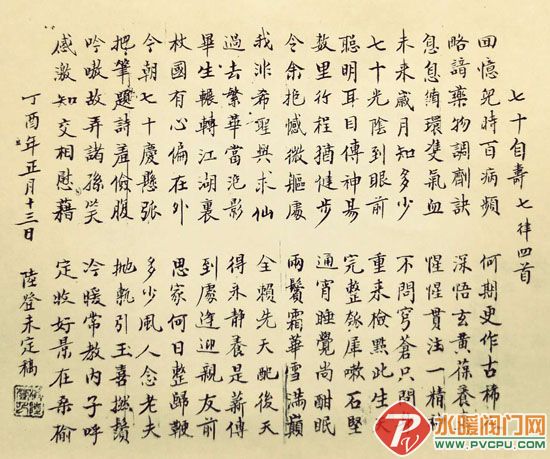 七十自壽七律四首
回憶兒時百病頻 何期更作古稀
略諳藥物調劑訣 深悟玄黃葆養
息息循環雙氣血 惺惺貫注一精
未來歲月知多少 不問穹蒼只問
七十光陰到眼前 重來檢點此生
聰明耳目傳神易 完整犀嗽石堅
數里行程猶健步 通宵睡覺尚酣眠
令余抱憾微軀處 兩鬢霜華雪滿巔
我非希聖與求仙 全賴先天配後天
過去繁華當泡影 得永靜養是薪傳
畢生輾轉江湖裏 到處逢迎親友前
杖國有心偏在外 思家何日整歸鞭
今朝七十慶懸弧 多少風人念老夫
把筆題詩羞儉腹 拋甎引玉喜撚鬚
吟嗷故弄諸孫笑 冷暖常教內子呼
感激知交相慰藉 定收好景在桑榆
丁酉年正月十三日 陸登未定稿
水暖阀门网
WWW.PVCPU.COM